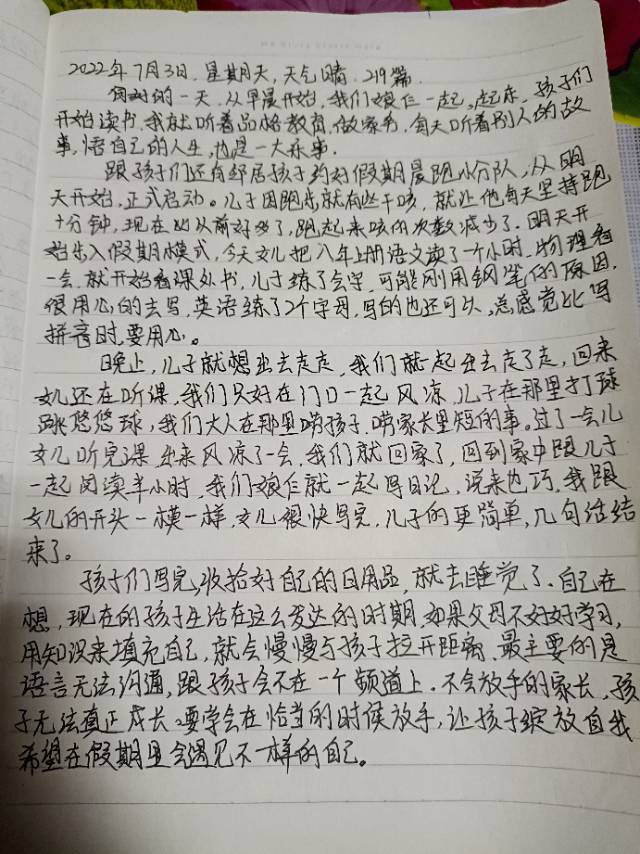 2022年7月3日.星期天,天气晴.219篇.
的一天.从早晨开始,我们娘仨一起,起床.孩子们
开始读书.我就听着品格教育,做家务.每天听着别人的故
事,悟自己的人生,也是一大乐事.
跟孩子们还有邻居孩子约好假期晨跑小分队,从明
天开始,正式启动。儿子因跑步就有些干咳,就让他每天坚持跑
十分钟,现在比从前好多了,跑起来咳的次数减少了.明天开
始步入假期模式,今天女儿把八年上册语文读了一个小时.物理看
一会.就开始看课外书,儿子练了会字.可能刚用钢笔的原因.
很用心的去写.英语练了2个字母.写的也还可以,总感觉比写
拼音时要用心。
晚上,儿子就想出去走走,我们就一起出去走了走,回来
女儿还在听课,我们只好在门口一起风凉.儿子在那里打球
跳悠悠球,我们大人在那里唠孩子.唠家长里短的事。过了一会儿
女儿听完课出来风凉了一会.我们就回家了,回到家中跟儿子
一起阅读半小时,我们娘仨就一起写日记.说来也巧,我跟
女儿的开头一模一样.女儿很快写完,儿子的更简单,几句话结
来了。
孩子们写完,收拾好自己的日用品,就去睡觉了.自己在
想,现在的孩子生活在这么发达的时期.如果父母不好好学习,
用知识来填充自己,就会慢慢与孩子拉开距离.最主要的是
语言无法沟通,跟孩子会不在一个频道上.不会放手的家长,孩
子无法真正成长.要学会在恰当的时候放手,让孩子绽放自我
希望在假期里会遇见不一样的自己。